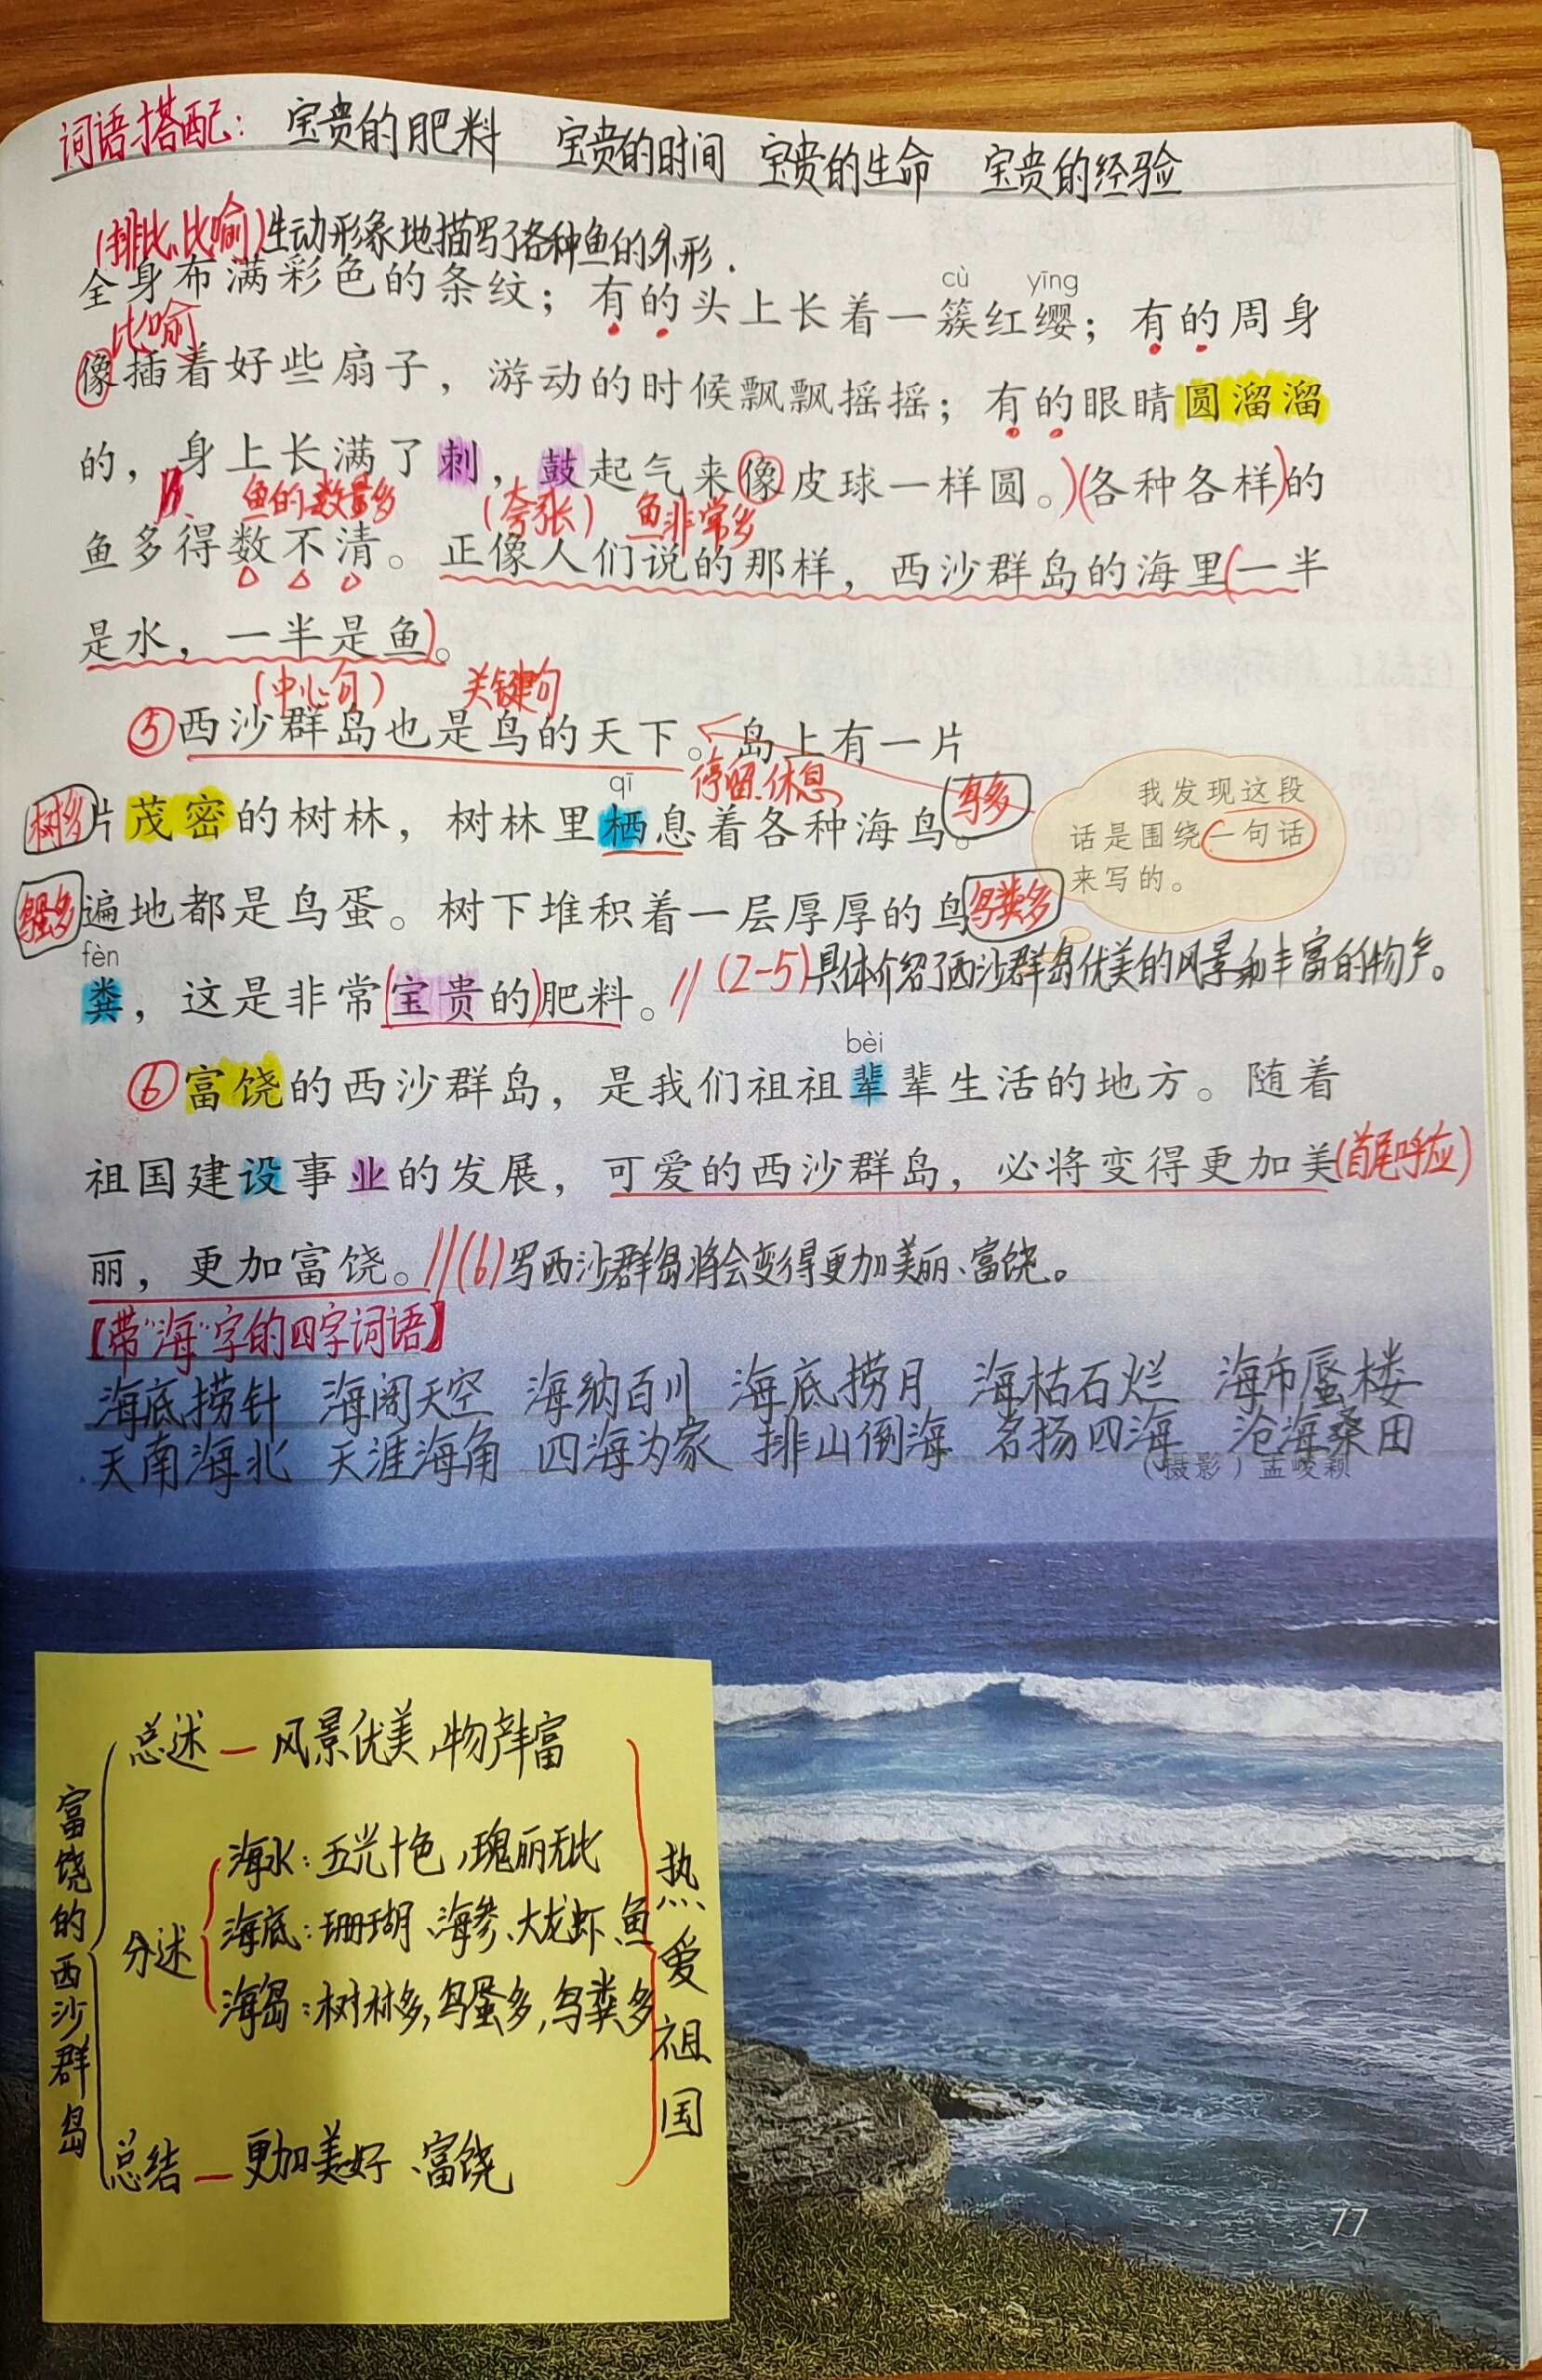 词语搭配：宝贵的肥料 宝贵的时间 宝贵的生命 宝贵的经验
(排比、比喻)生动形象地描写了各种鱼的外形.
cù yīng
全身布满彩色的条纹；有的头上长着一簇红缨；有的周身
比喻
像插着好些扇子，游动的时候飘飘摇摇；有的眼睛圆溜溜
的，身上长满了刺，鼓起气来像皮球一样圆。)(各种各样)的
鱼的数量多 (夸张) 鱼非常多
鱼多得数不清。正像人们说的那样，西沙群岛的海里(一半
是水，一半是鱼)。
(中心句) 关键句
⑤西沙群岛也是鸟的天下。岛上有一片
qī 停留.休息
树多 片茂密的树林，树林里栖息着各种海鸟。 鸟多
我发现这段
话是围绕一句话
来写的。
鸟蛋多 遍地都是鸟蛋。树下堆积着一层厚厚的鸟 鸟粪多
fèn
粪，这是非常(宝贵的)肥料。//(2-5)具体介绍了西沙群岛优美的风景和丰富的物产。
bèi
⑥富饶的西沙群岛，是我们祖祖辈辈生活的地方。随着
祖国建设事业的发展，可爱的西沙群岛，必将变得更加美(首尾呼应)
丽，更加富饶。//(6)写西沙群岛将会变得更加美丽、富饶。
【带“海”字的四字词语】
海底捞针 海阔天空 海纳百川 海底捞月 海枯石烂 海市蜃楼
天南海北 天涯海角 四海为家 排山倒海 名扬四海 沧海桑田
（摄影）孟峻颖
富饶的西沙群岛
总述—风景优美,物产丰富
分述
海水：五光十色,瑰丽无比
海底：珊瑚、海参、大龙虾、鱼
海岛：树林多,鸟蛋多,鸟粪多
总结—更加美好、富饶
热爱祖国
77